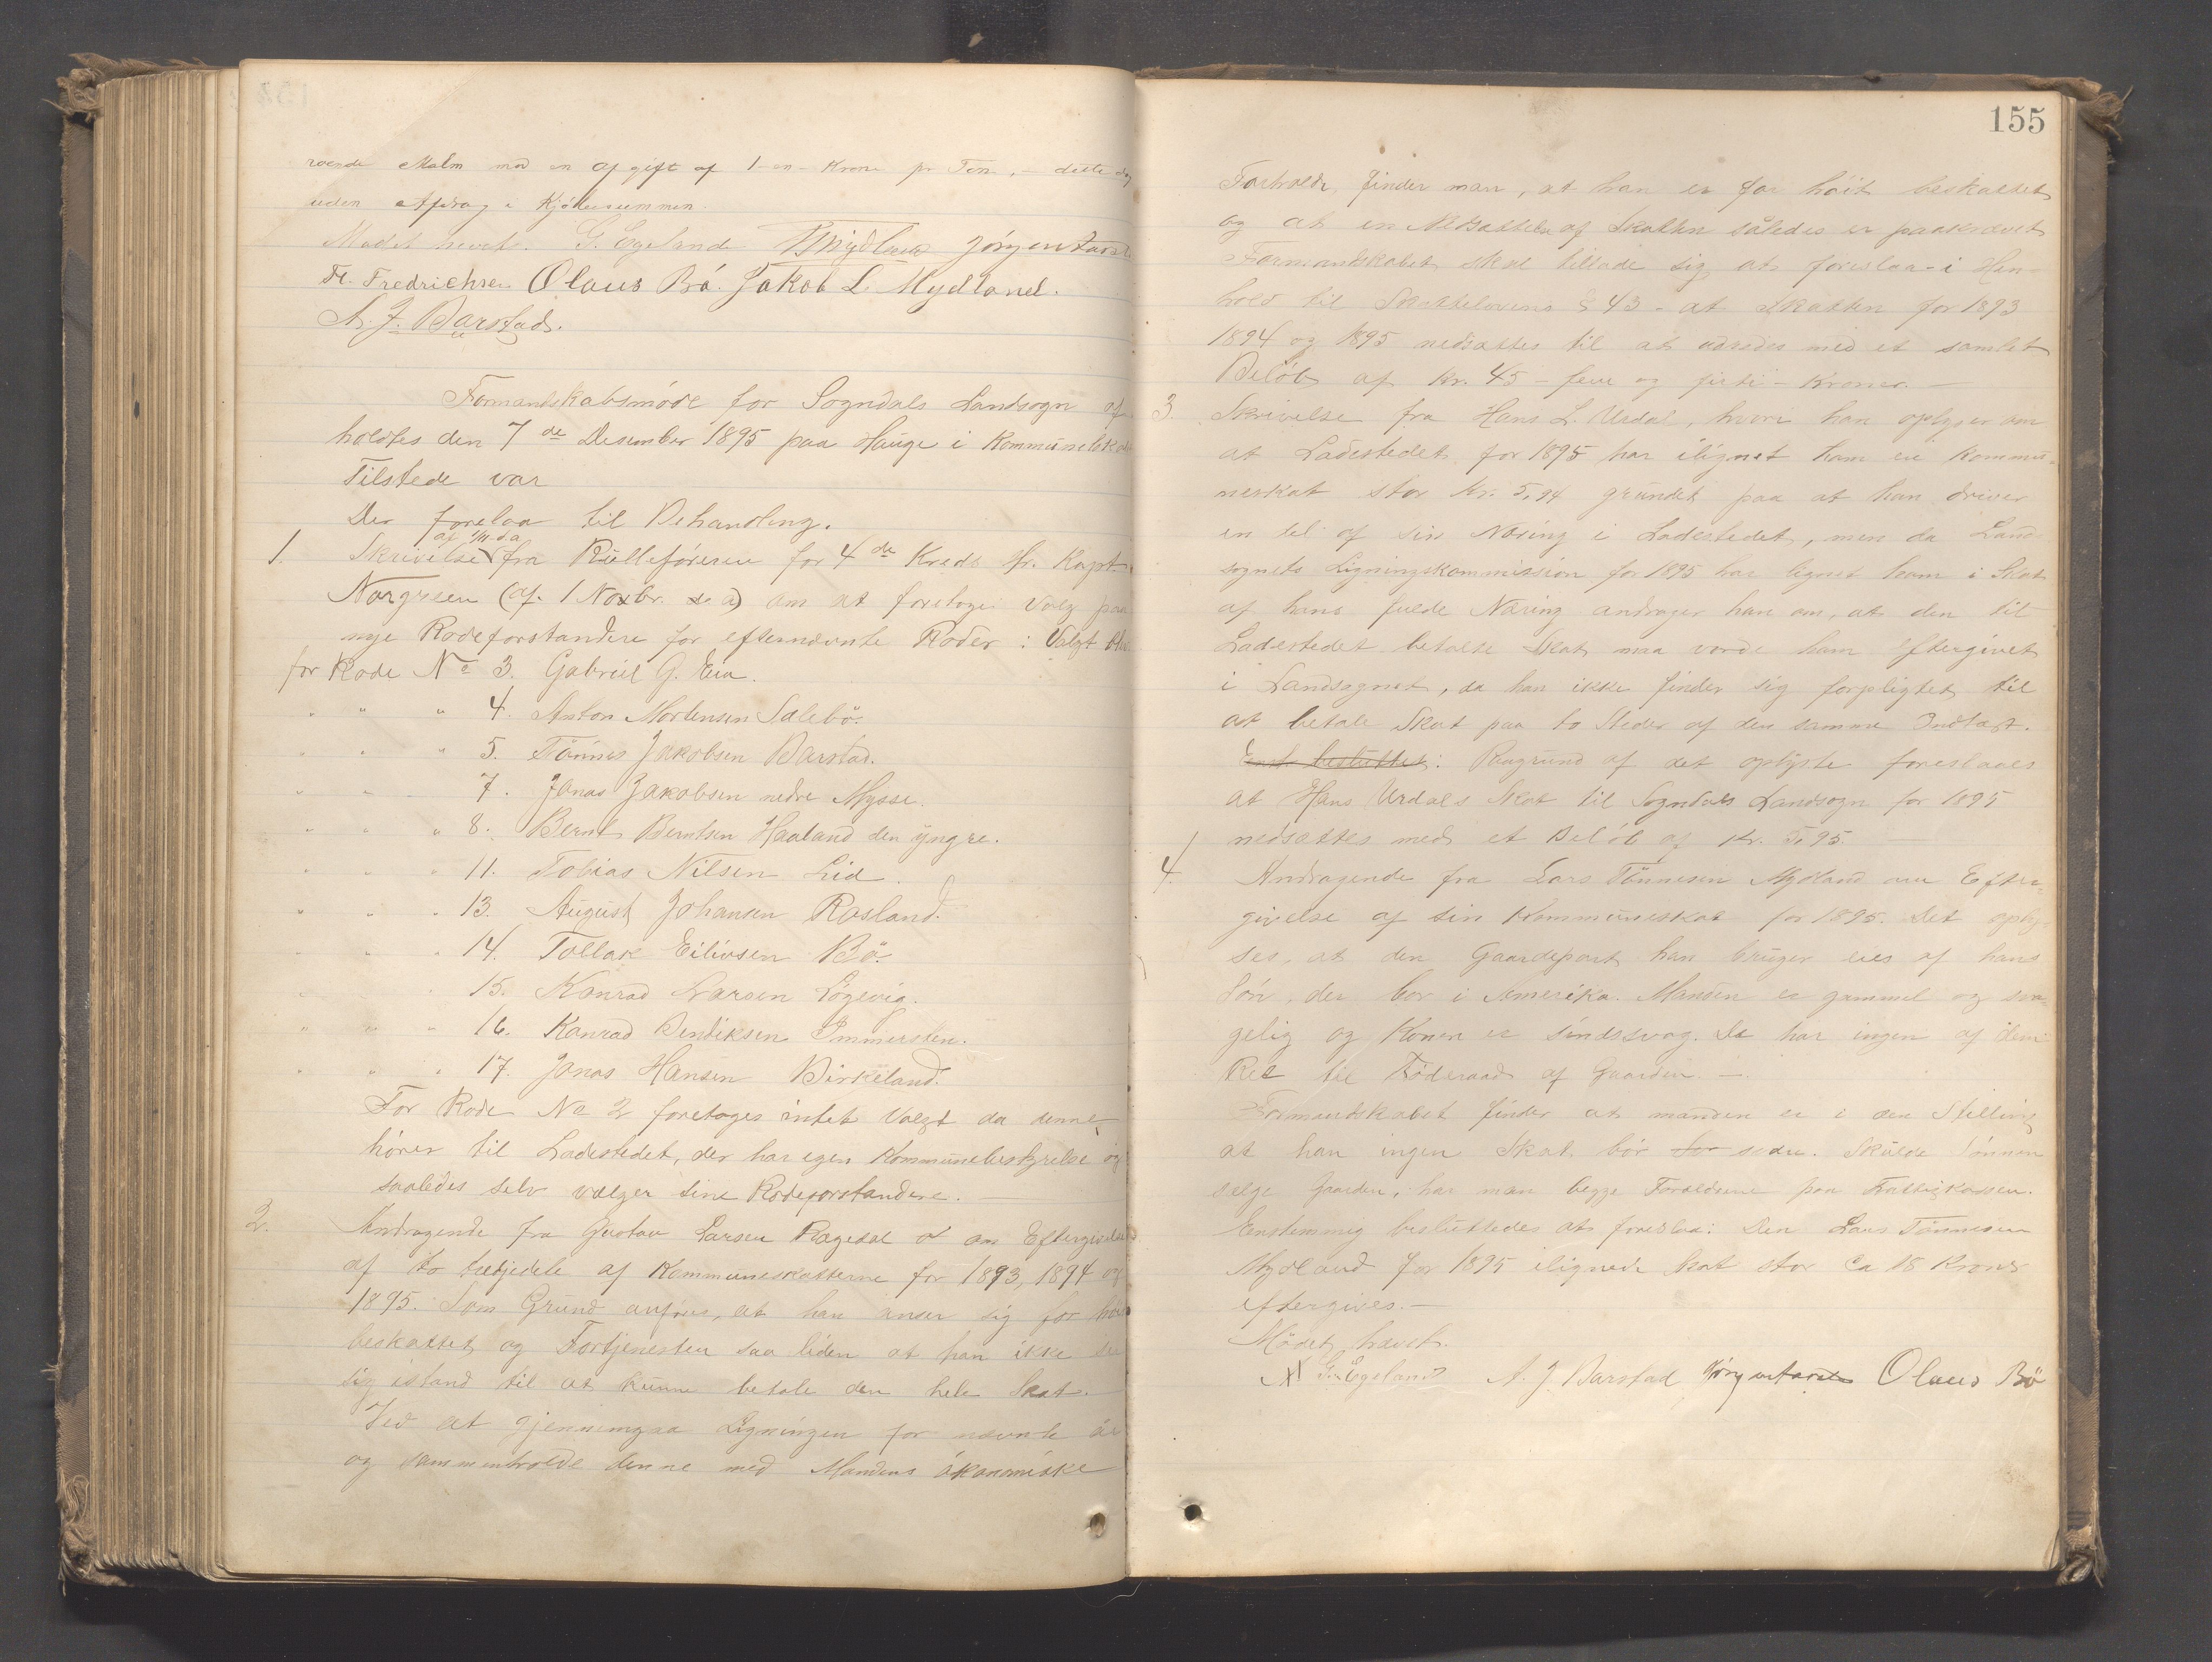 roende Malm mod en Afgift af 1-en-Krone pr Ton, - dette dog
uden Afdrag i Kjöbesummen.
Mödet hævet. G. Egeland Jörgen
Fr. Fredrichsen Olaus Bö. Jakob L. Mydland.
A. J. Barstad.
Formandskabsmöde for Sogndals Landsogn af-
holdtes den 7de Desember 1895 paa Hauge i Kommunelokal
Tilstede var
Der forelaa til Behandling.
1. Skrivelse fra Rulleföreren for 4de Kreds Hr. Kapt.
(af 1 Novbr. d. a) om at foretage Valg paa
nye Rodeforstandere for efternævnte Roder: Valgt blev
for Rode No 3. Gabriel G. Eia.
" " " 4. Anton Mortensen Salebö.
" " " 5. Tönnes Jakobsen Barstad.
" " 7. Jonas Jakobsen nedre Mysse.
" " " 8. Bernt Berntsen Haaland den yngre.
" " " 11. Tobias Nilsen Lid.
" " " 13. August Johansen Rosland.
" " " 14. Tollak Eilivsen Bö.
15. Konrad Larsen Logevig.
" " " 16. Konrad Bendiksen Immerstein.
" " " 17. Jonas Hansen Birkeland.
For Rode No 2 foretages intet Valgt da denne
hörer til Ladestedet, der har egen Kommunebestyrelse og
saaledes selv vælger sine Rodeforstandere. -
2. Andragende fra Gustav Larsen Rægedal om Eftergivelse
af to tredjedele af Kommuneskatterne for 1893, 1894 og
1895. Som Grund anföres, at han anser sig for höit
beskattet og Fortjenesten saa liden at han ikke ser
sig istand til at kunne betale den hele Skat.
Ved at gjennemgaa Ligningen for nævnte år
og sammenholde denne med Mandens ökonomiske
155
Forholde, finder man, at han er for höit beskattet
og at en Nedsættelse af Skatten således er paakrævet
Formandskabet skal tillade sig at foreslaa - i Hen-
hold til Skattelovens § 43 - at Skatten for 1893
1894 og 1895 nedsættes til at udredes med et samlet
Belöb af Kr. 45 - fem og firti - Kroner. -
3. Skrivelse fra Hans L. Urdal, hvori han oplyser om
at Ladestedet for 1895 har ilignet ham en Kommu-
neskat stor Kr. 5,94 grundet paa at han driver
en del af sin Næring i Ladestedet, men da Land-
sognets Ligningskommission for 1895 har lignet ham i Skat
af hans fulde Næring andrager han om, at den til
Ladestedet betalte Skat maa vorde ham eftergivet
i Landsognet, da han ikke finder sig forpligtet til
at betale Skat paa to Steder af den samme Indtægt.
Enst. besluttet: Paagrund af det oplyste foreslaaes
at Hans Urdals Skat til Sogndals Landsogn for 1895
nedsættes med et Belöb af Kr. 5,95. -
4. Andragende fra Lars Tönnesen Mydland om Efter-
givelse af sin Kommuneskat for 1895. Det oply-
ses, at den Gaardepart han bruger eies af hans
Sön, der bor i Amerika. Manden er gammel og sva-
gelig og Konen er sindssvag. De har ingen af dem
Ret til Föderaad af Gaarden. -
Formandskabet finder at manden er i den Stilling
at han ingen Skat bör svare. Skulde Sönnen
selge Gaarden, har man begge Forældrene paa Fattigkassen.
Enstemmig besluttedes at foreslaa: Den Lars Tönnesen
Mydland for 1895 ilignede Skat stor Ca 18 Kroner
eftergives. -
Mödet hævet.
G. Egeland A. J. Barstad Olaus Bö